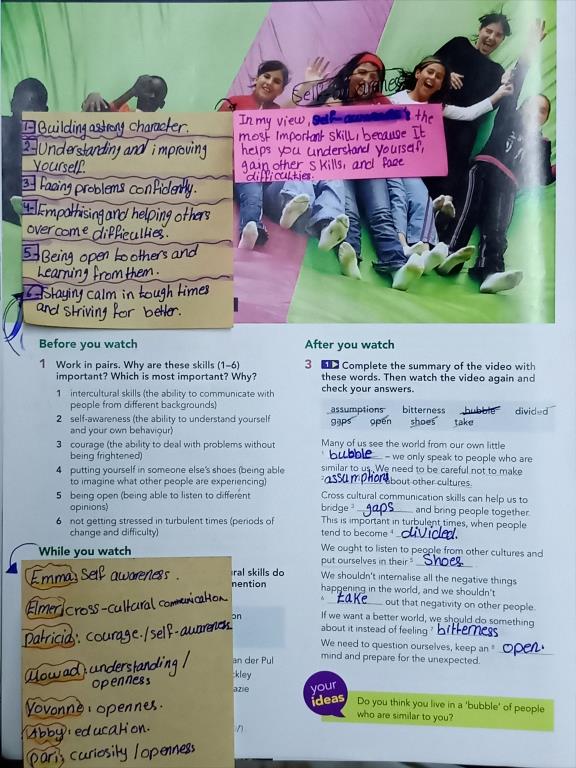 Self-awareness
1- Building a strong character.
2- Understanding and improving
yourself.
3- Facing problems confidently.
4- Empathising and helping others
overcome difficulties.
5- Being open to others and
Learning from them.
6- Staying calm in tough times
and striving for better.
In my view, self-awareness the
most important skill, because It
helps you understand yourself,
gain other skills, and face
difficulties.
Before you watch
1 Work in pairs. Why are these skills (1–6)
important? Which is most important? Why?
1 intercultural skills (the ability to communicate with
people from different backgrounds)
2 self-awareness (the ability to understand yourself
and your own behaviour)
3 courage (the ability to deal with problems without
being frightened)
4 putting yourself in someone else's shoes (being able
to imagine what other people are experiencing)
5 being open (being able to listen to different
opinions)
6 not getting stressed in turbulent times (periods of
change and difficulty)
While you watch
ral skills do
mention
on
an der Pul
kley
azie
Emma: Self awareness.
Elmer: cross-cultural communication
Patricia: courage./self-awareness
understanding/
openness
Yovonne: opennes.
Abby: education.
Paris: curiosity/openness
After you watch
3 1 Complete the summary of the video with
these words. Then watch the video again and
check your answers.
assumptions bitterness bubble divided
gaps open shoes take
Many of us see the world from our own little
1 bubble – we only speak to people who are
similar to us. We need to be careful not to make
2 assumptions about other cultures.
Cross cultural communication skills can help us to
bridge 3 gaps and bring people together.
This is important in turbulent times, when people
tend to become 4 divided.
We ought to listen to people from other cultures and
put ourselves in their 5 shoes.
We shouldn't internalise all the negative things
happening in the world, and we shouldn't
6 take out that negativity on other people.
If we want a better world, we should do something
about it instead of feeling 7 bitterness
We need to question ourselves, keep an 8 open.
mind and prepare for the unexpected.
your
ideas
Do you think you live in a 'bubble' of people
who are similar to you?